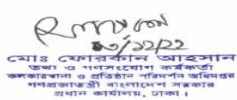 মোঃ ফোরকান আহসান
তথ্য ও গণসংযোগ কর্মকর্তা
কলকারখানা ও প্রতিষ্ঠান পরিদর্শন অধিদপ্তর
গণপ্রজাতন্ত্রী বাংলাদেশ সরকার
প্রধান কার্যালয়, ঢাকা।